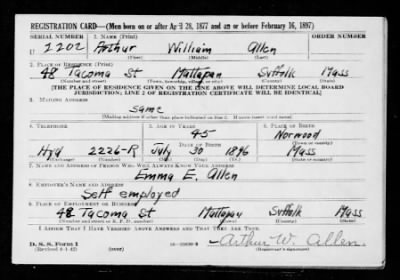 REGISTRATION CARD—(Men born on or after April 28, 1877 and on or before February 16, 1897)
SERIAL NUMBER 1. NAME (Print) ORDER NUMBER
U 1202 Arthur William Allen
(First) (Middle) (Last)
2. PLACE OF RESIDENCE (Print)
48 Tacoma St Mattapan Suffolk Mass
(Number and street) (Town, township, village, or city) (County) (State)
[THE PLACE OF RESIDENCE GIVEN ON THE LINE ABOVE WILL DETERMINE LOCAL BOARD
JURISDICTION; LINE 2 OF REGISTRATION CERTIFICATE WILL BE IDENTICAL]
3. MAILING ADDRESS
same
(Mailing address if other than place indicated on line 2. If same insert word same)
4. TELEPHONE 5. AGE IN YEARS 6. PLACE OF BIRTH
45 Norwood
DATE OF BIRTH (Town or county)
Hyd 2226-R July 30 1896 Mass
(Exchange) (Number) (Mo.) (Day) (Yr.) (State or country)
7. NAME AND ADDRESS OF PERSON WHO WILL ALWAYS KNOW YOUR ADDRESS
Emma E. Allen
8. EMPLOYER'S NAME AND ADDRESS
Self employed
9. PLACE OF EMPLOYMENT OR BUSINESS
48 Tacoma St Mattapan Suffolk Mass
(Number and street or R. F. D. number) (Town) (County) (State)
I AFFIRM THAT I HAVE VERIFIED ABOVE ANSWERS AND THAT THEY ARE TRUE.
D. S. S. Form 1
(Revised 4-1-42) (over) Arthur W. Allen.
(Registrant's signature)